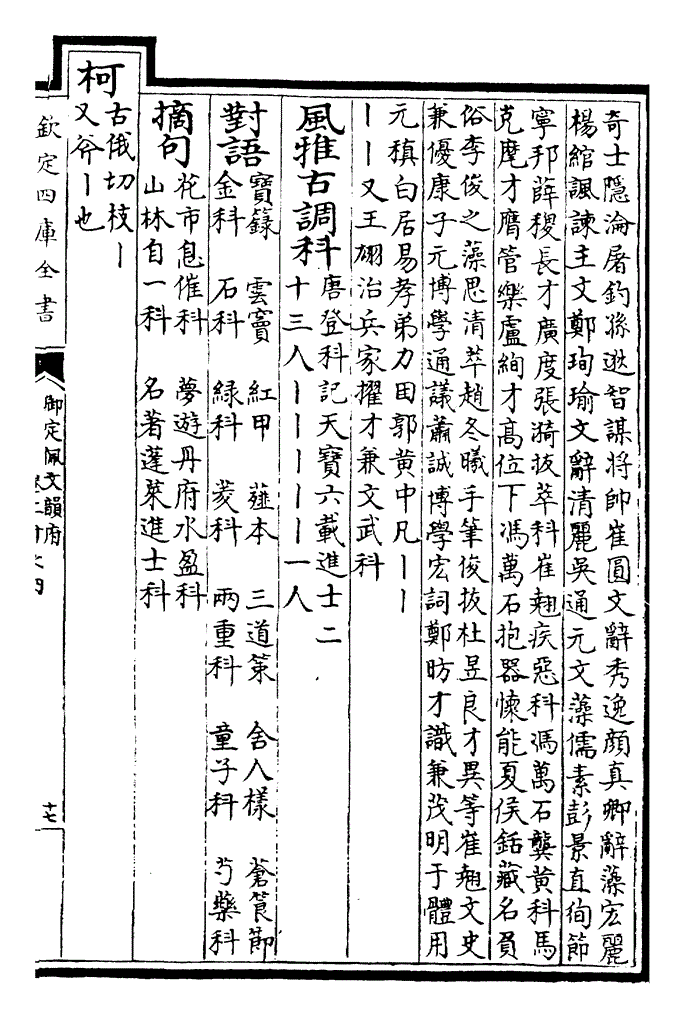 奇士隱淪屠釣孫逖智謀將帥崔圓文辭秀逸顏真卿辭藻宏麗
楊綰諷諫主文鄭珣瑜文辭清麗吳通元文藻儒素彭景直絢節
寧邦薛稷長才廣度張漪拔萃科崔翹疾惡科馮萬石龔黄科馬
克麾才膺管樂盧絢才髙位下馮萬石抱器懷能夏侯銛藏名負
俗李俊之藻思清萃趙冬曦手筆俊拔杜昱良才異等崔翹文史
兼優康子元博學通議蕭誠博學宏詞鄭昉才識兼茂明于體用
元稹白居易孝弟力田郭黄中凡丨丨
丨丨又王翃治兵家擢才兼文武科
風雅古調科
唐登科記天寶六載進士二
十三人丨丨丨丨丨一人
對語
寶籙 雲竇 紅甲 薤本 三道策 舍人樣 蒼筤節
金科 石科 綠科 菱科 兩重科 童子科 芍藥科
摘句
花市息催科 夢遊丹府水盈科
山林自一科 名著蓬萊進士科
柯
古俄切枝丨
又斧丨也
欽定四庫全書
御定佩文韻府
十七